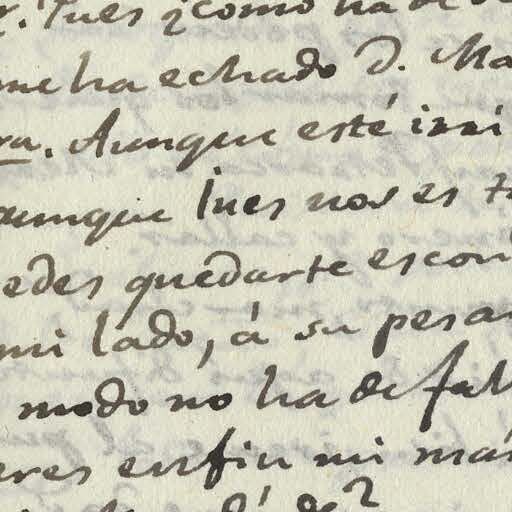 Pues ¿como ha de
me ha echado D. Ma
ra. Aunque esté irri
aunque Ines nos es t
edes quedarte escon
mi lado, á su pesar
modo no ha de fal
eres enfin mi má